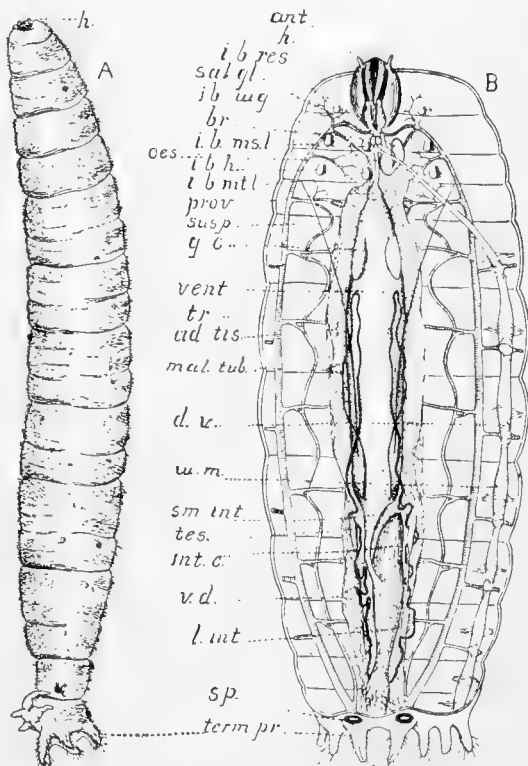 h.
A
B
ant.
h.
i b res
sal gl.
ib wg
br.
i. b. ms.l
oes.
i b h.
i b mtl
prov
susp.
g c.
vent
tr.
ad tis.
mal. tub.
d. v.
w. m.
sm int
tes.
int. c.
v. d.
l. int
sp.
term pr.